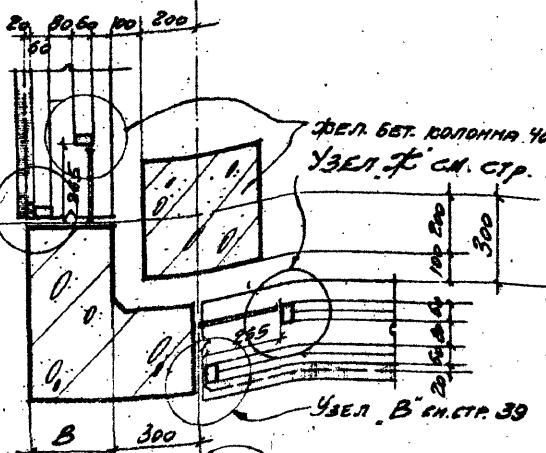 20 60 80 60 100 200
265
ЖЕЛ. БЕТ. КОЛОННА
УЗЕЛ "Ж" СМ. СТР.
100 200
300
265
УЗЕЛ "В" СМ. СТР. 39
В 300